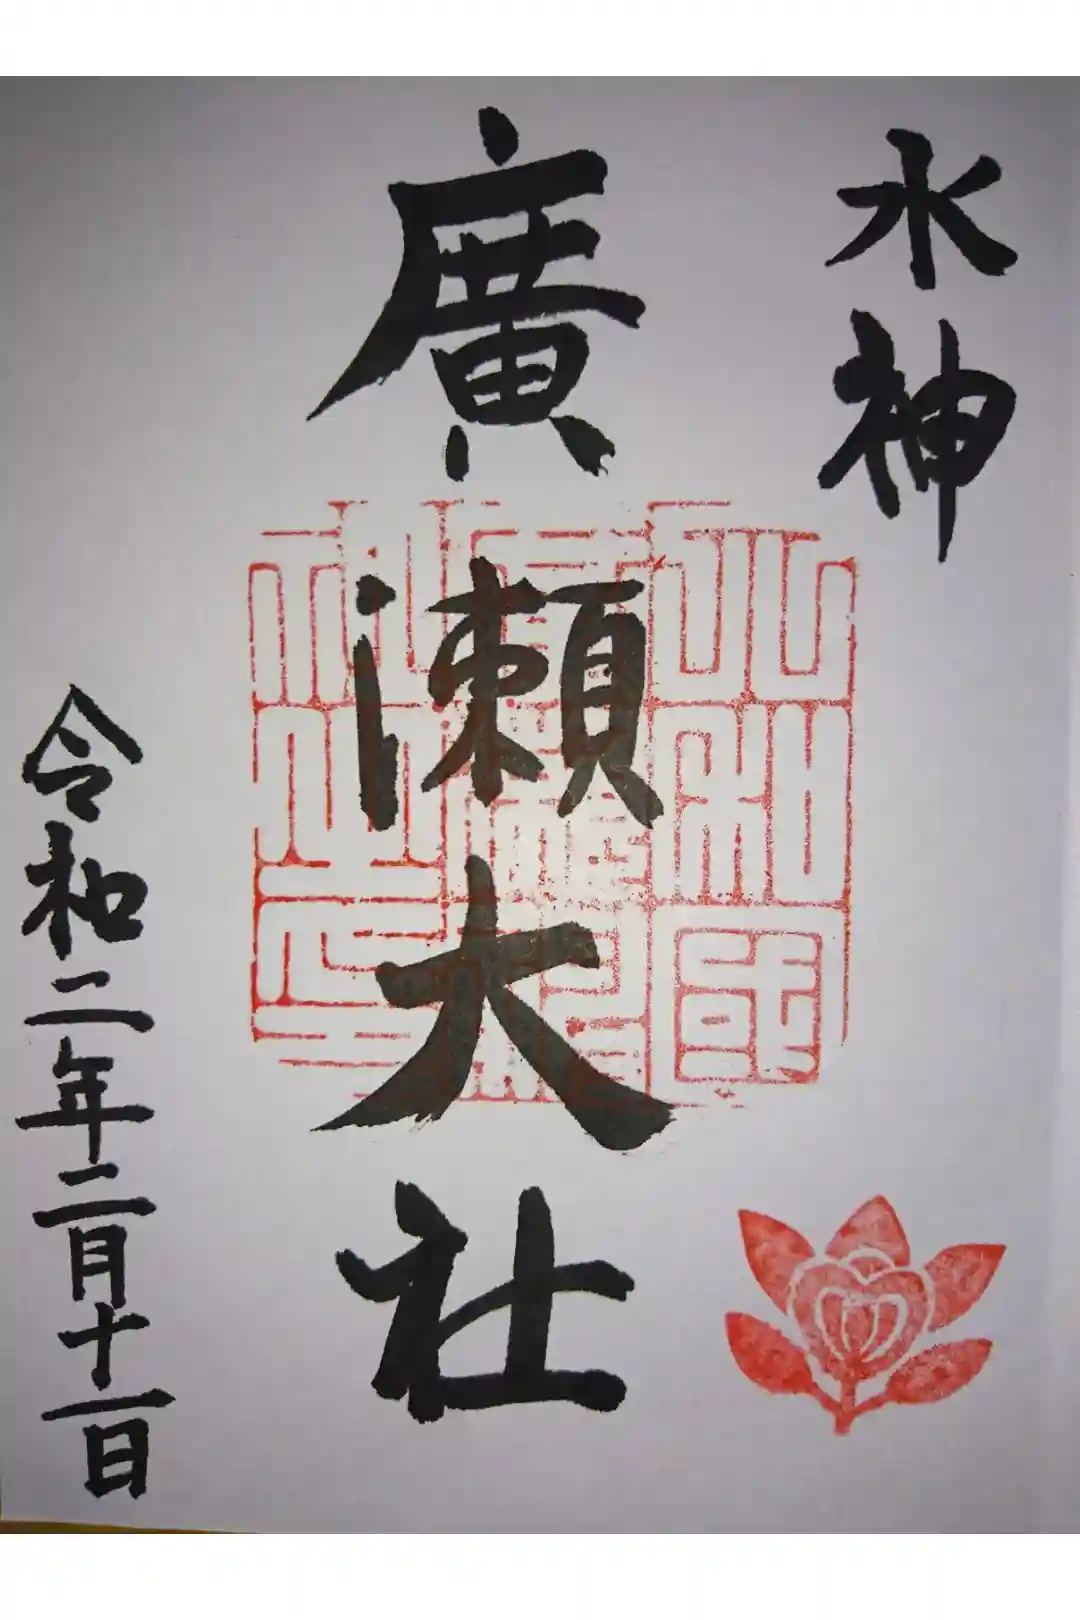 水神
廣瀬大社
令和二年二月十一日